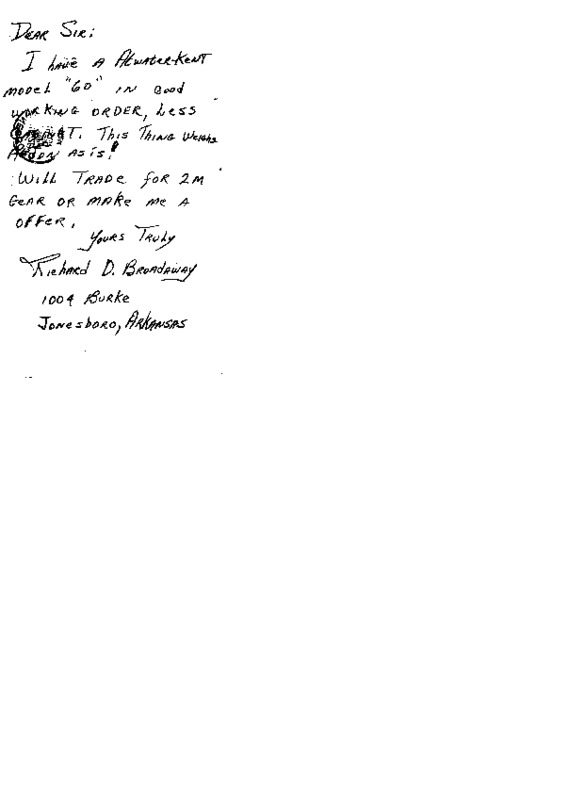 Dear Sir:
I have A Atwater-Kent
model "60" in Good
working order, Less
Cabinet. This Thing Weighs
A ton as is!
Will Trade for 2M
Gear or make me A
offer.
Yours Truly
Richard D. Broadaway
1004 Burke
Jonesboro, Arkansas